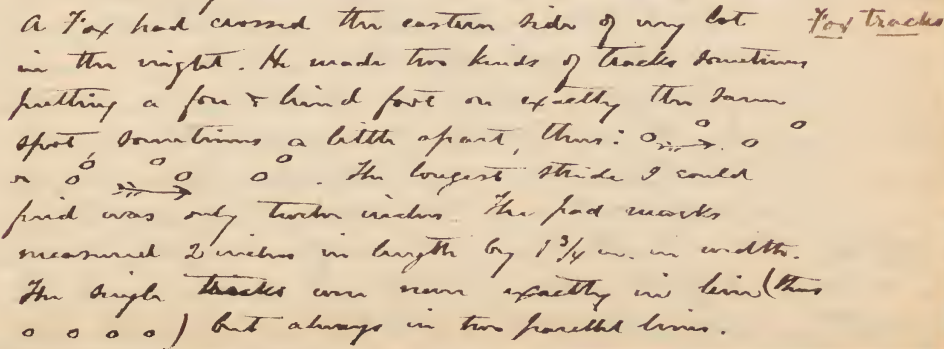 A Fox had crossed the eastern side of my lot Fox tracks
in the night. He made two kinds of tracks sometimes
putting a fore & hind foot on exactly the same
spot, sometimes a little apart, thus: o o o o
or o o o o o. The longest stride I could
find was only twelve inches. The pad marks
measured 2 inches in length by 1 3/4 in. in width.
The single tracks were never exactly in line (thus
o o o o) but always in two parallel lines.